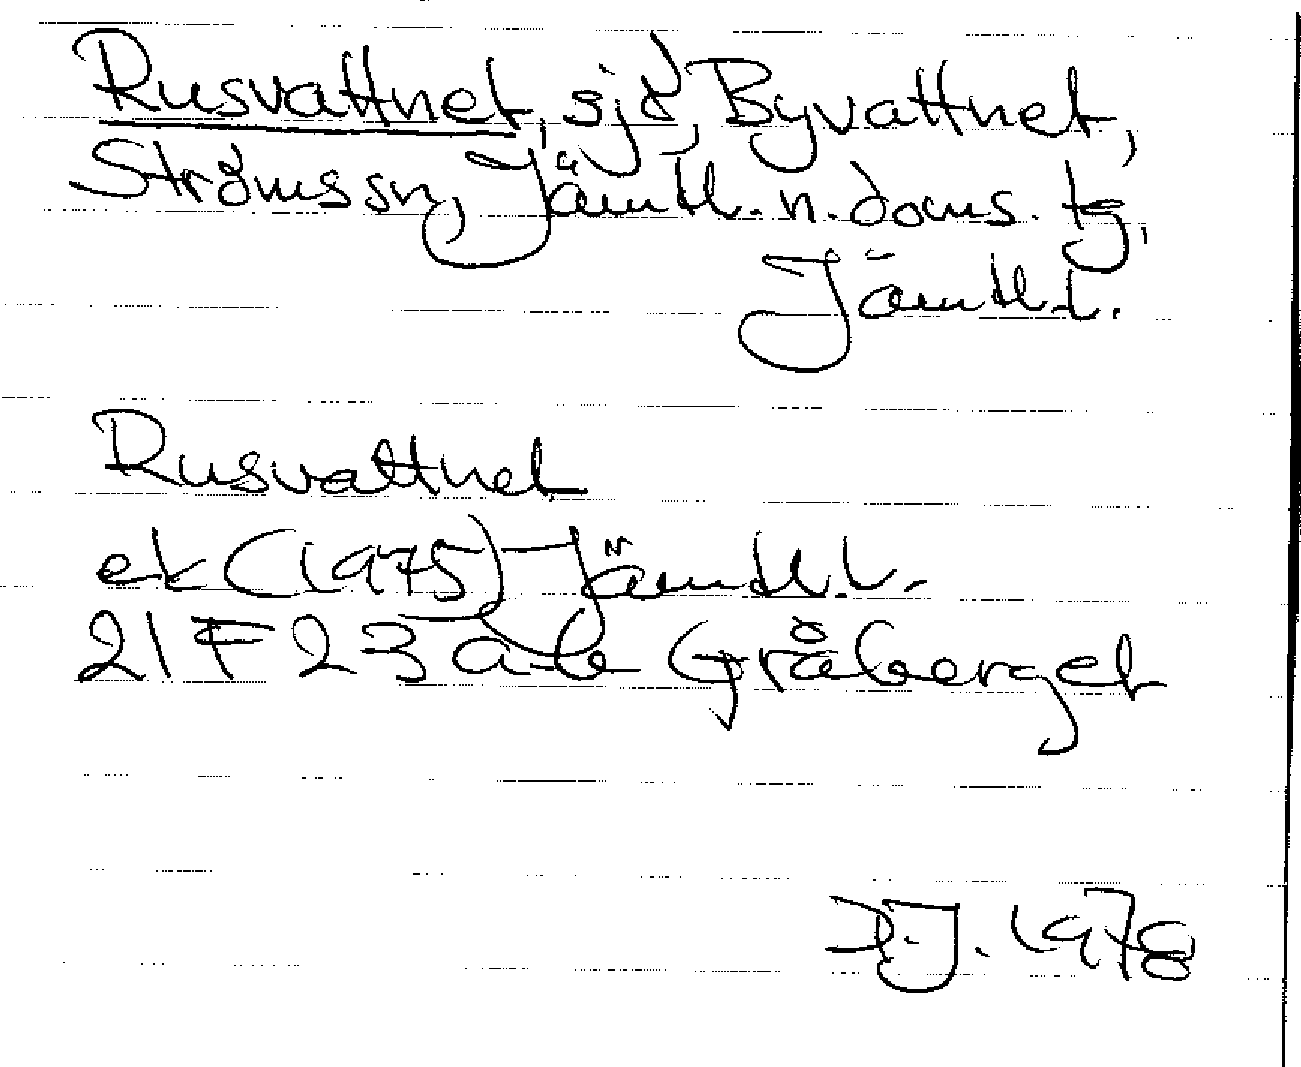 Rusvattnet, sjö, Byvattnet,
Ströms sn, Jämtl. n. doms. tg,
Jämtl. l.
Rusvattnet
ek (1975) Jämtl. l.
21 F 23 a-b Gråberget
1978